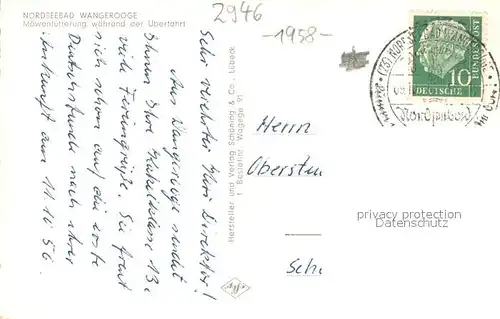 NORDSEEBAD WANGEROOGE
Möwenfütterung während der Überfahrt
2946
-1958-
Sehr verehrter Herr Direktor!
Aus Wangerooge sendet
Ihnen Ihre Klasse 13c
viele Feriengrüße. Sie freut
sich schon auf die erste
Deutschstunde nach ihrer
Ankunft am 11.10.56.
Hersteller und Verlag Schöning & Co., Lübeck
1 Bestellnr. Wagege 91
Herrn
Obersten
Sch
DEUTSCHE
BUNDESPOST
10
Nordseebad
privacy protection
Datenschutz